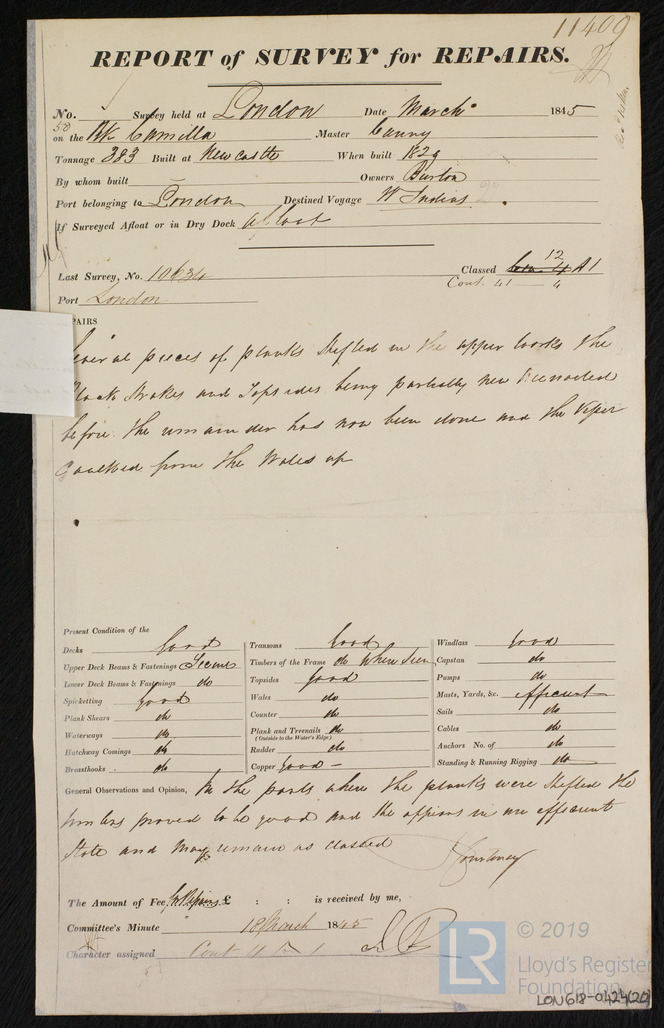 11409
REPORT of SURVEY for REPAIRS.
No. Survey held at London Date March 1845
50 on the Bk Camilla Master Canny
Tonnage 383 Built at Newcastle When built 1829
By whom built Owners Burton
Port belonging to London Destined Voyage W Indies
If Surveyed Afloat or in Dry Dock afloat
Last Survey, No. 10634 Classed 12 A1
Cont. 41 — 4
Port London
PAIRS
pieces of planks shifted in the upper works the
Black Strakes and Topsides being partially new
before the remainder has now been done and the
Caulked from the Wales up
Present Condition of the
Decks Good
Upper Deck Beams & Fastenings
Lower Deck Beams & Fastenings do
Spirketting Good
Plank Shears do
Waterways do
Hatchway Comings do
Breasthooks do
Transoms Good
Timbers of the Frame do where seen
Topsides Good
Wales do
Counter do
Plank and Treenails do
(Outside to the Water's Edge)
Rudder do
Copper Good
Windlass Good
Capstan do
Pumps do
Masts, Yards, &c. efficient
Sails do
Cables do
Anchors No. of do
Standing & Running Rigging do
General Observations and Opinion, In the parts where the planks were shifted the
timbers proved to be good and the appears in an efficient
State and may remain as classed
Courtenay
The Amount of Fee for Repairs £ : : is received by me,
Committee's Minute 18 March 1845
Character assigned Cont
© 2019
LR
Lloyd's Register
Foundation
LON618-0424(20)